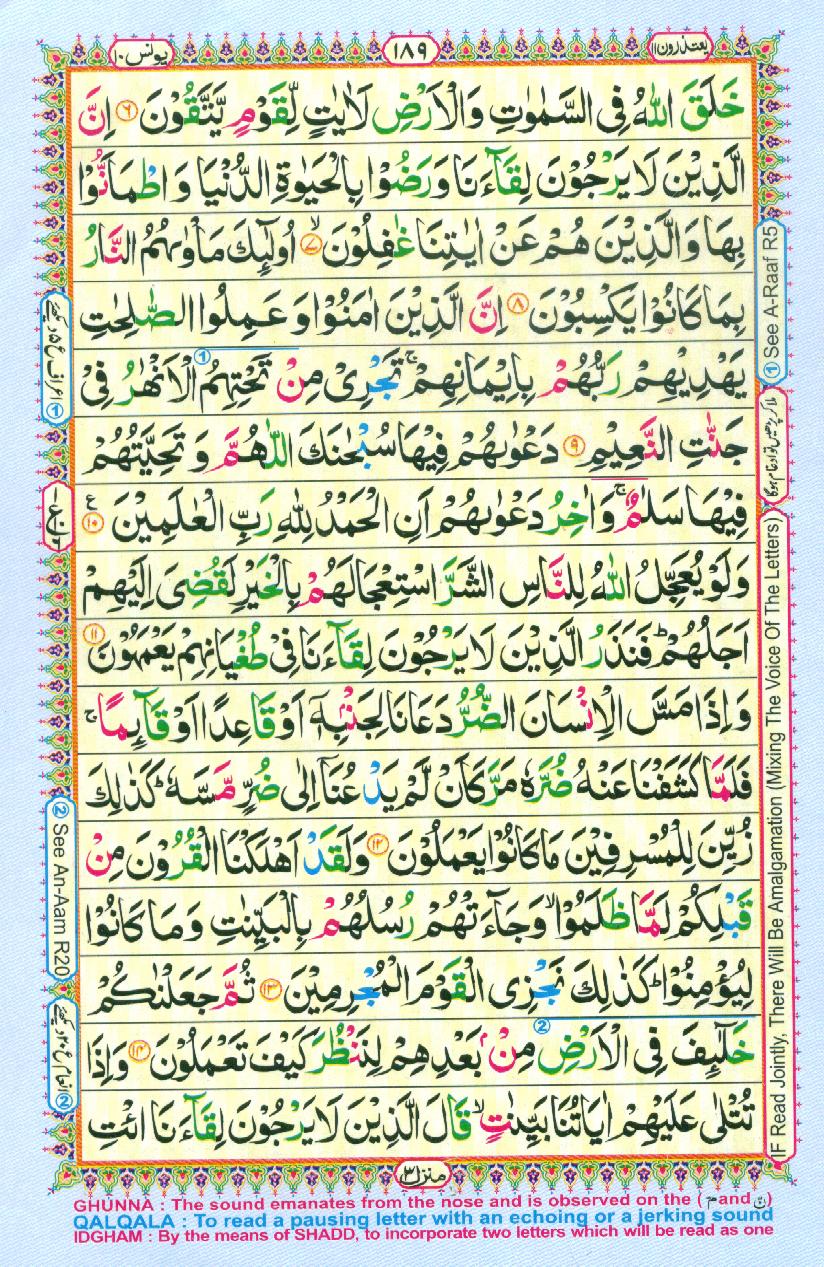 يعتذرون ١١
١٨٩
يونس ١٠
خَلَقَ اللّٰهُ فِى السَّمٰوٰتِ وَالْاَرْضِ لَاٰيٰتٍ لِّقَوْمٍ يَّتَّقُوْنَ ۝٦ اِنَّ
الَّذِيْنَ لَا يَرْجُوْنَ لِقَآءَنَا وَرَضُوْا بِالْحَيٰوةِ الدُّنْيَا وَ اطْمَاَنُّوْا
بِهَا وَالَّذِيْنَ هُمْ عَنْ اٰيٰتِنَا غٰفِلُوْنَ ۙ۝٧ اُولٰٓئِكَ مَاْوٰىهُمُ النَّارُ
بِمَا كَانُوْا يَكْسِبُوْنَ ۝٨ اِنَّ الَّذِيْنَ اٰمَنُوْا وَ عَمِلُوا الصّٰلِحٰتِ
يَهْدِيْهِمْ رَبُّهُمْ بِاِيْمَانِهِمْ ۚ تَجْرِىْ مِنْ تَحْتِهِمُ ① الْاَنْهٰرُ فِىْ
جَنّٰتِ النَّعِيْمِ ۝٩ دَعْوٰىهُمْ فِيْهَا سُبْحٰنَكَ اللّٰهُمَّ وَ تَحِيَّتُهُمْ
فِيْهَا سَلٰمٌ ۚ وَاٰخِرُ دَعْوٰىهُمْ اَنِ الْحَمْدُ لِلّٰهِ رَبِّ الْعٰلَمِيْنَ ۝١٠ ع
وَلَوْ يُعَجِّلُ اللّٰهُ لِلنَّاسِ الشَّرَّ اسْتِعْجَالَهُمْ بِالْخَيْرِ لَقُضِىَ اِلَيْهِمْ
اَجَلُهُمْ ؕ فَنَذَرُ الَّذِيْنَ لَا يَرْجُوْنَ لِقَآءَنَا فِىْ طُغْيَانِهِمْ يَعْمَهُوْنَ ۝١١
وَاِذَا مَسَّ الْاِنْسَانَ الضُّرُّ دَعَانَا لِجَنْۢبِهٖٓ اَوْ قَاعِدًا اَوْ قَآئِمًا ۚ
فَلَمَّا كَشَفْنَا عَنْهُ ضُرَّهٗ مَرَّ كَاَنْ لَّمْ يَدْعُنَآ اِلٰى ضُرٍّ مَّسَّهٗ ؕ كَذٰلِكَ
زُيِّنَ لِلْمُسْرِفِيْنَ مَا كَانُوْا يَعْمَلُوْنَ ۝١٢ وَلَقَدْ اَهْلَكْنَا الْقُرُوْنَ مِنْ
قَبْلِكُمْ لَمَّا ظَلَمُوْا ۙ وَجَآءَتْهُمْ رُسُلُهُمْ بِالْبَيِّنٰتِ وَمَا كَانُوْا
لِيُؤْمِنُوْا ؕ كَذٰلِكَ نَجْزِى الْقَوْمَ الْمُجْرِمِيْنَ ۝١٣ ثُمَّ جَعَلْنٰكُمْ
خَلٰٓئِفَ فِى الْاَرْضِ ② مِنْۢ بَعْدِهِمْ لِنَنْظُرَ كَيْفَ تَعْمَلُوْنَ ۝١٤ وَاِذَا
تُتْلٰى عَلَيْهِمْ اٰيَاتُنَا بَيِّنٰتٍ ۙ قَالَ الَّذِيْنَ لَا يَرْجُوْنَ لِقَآءَنَا ائْتِ
① See A-Raaf R5
(IF Read Jointly, There Will Be Amalgamation (Mixing The Voice Of The Letters)
① اعراف ع ۵ دیکھئے
② See An-Aam R20
② انعام ع ۲۰ دیکھئے
منزل ٣
GHUNNA : The sound emanates from the nose and is observed on the ( مّ and نّ )
QALQALA : To read a pausing letter with an echoing or a jerking sound
IDGHAM : By the means of SHADD, to incorporate two letters which will be read as one